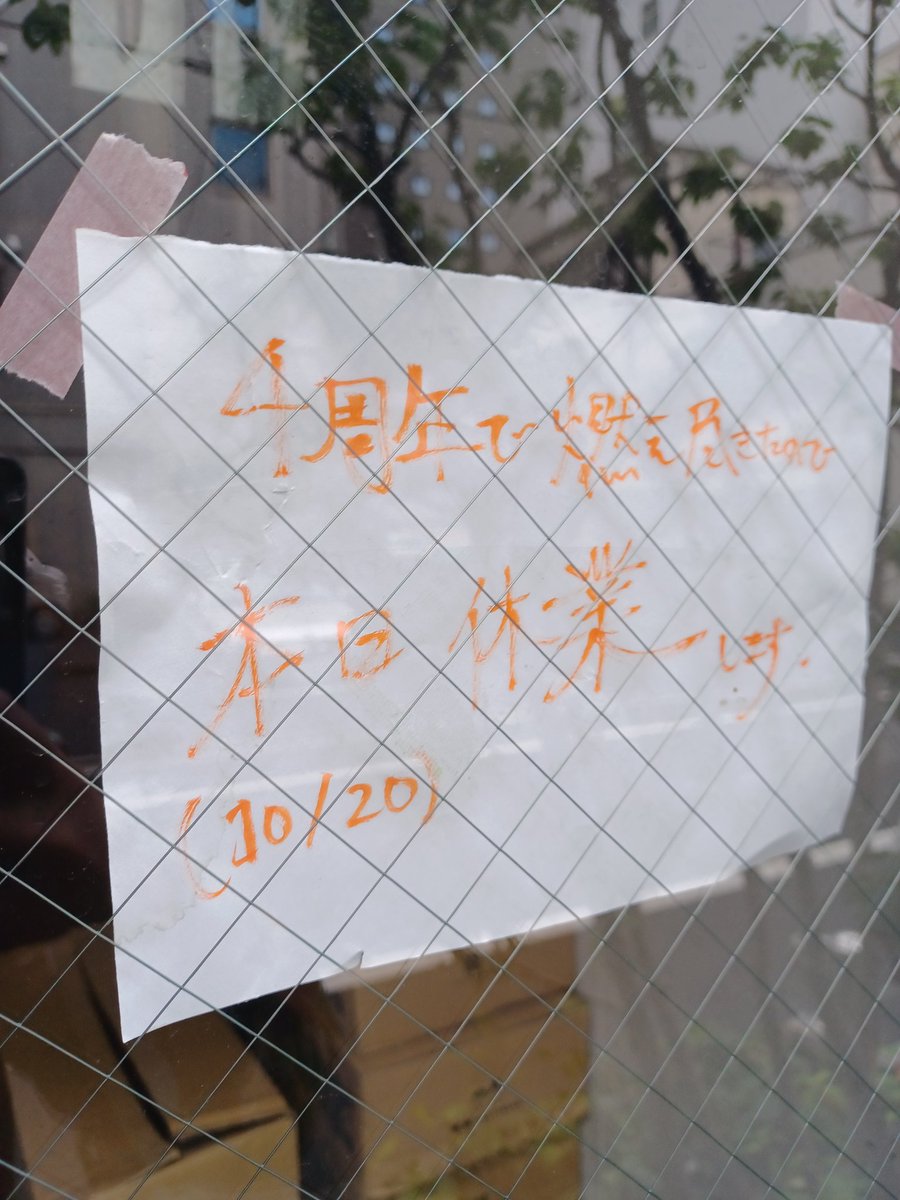 4周年で燃え尽きたので
本日休業します.
(10/20)